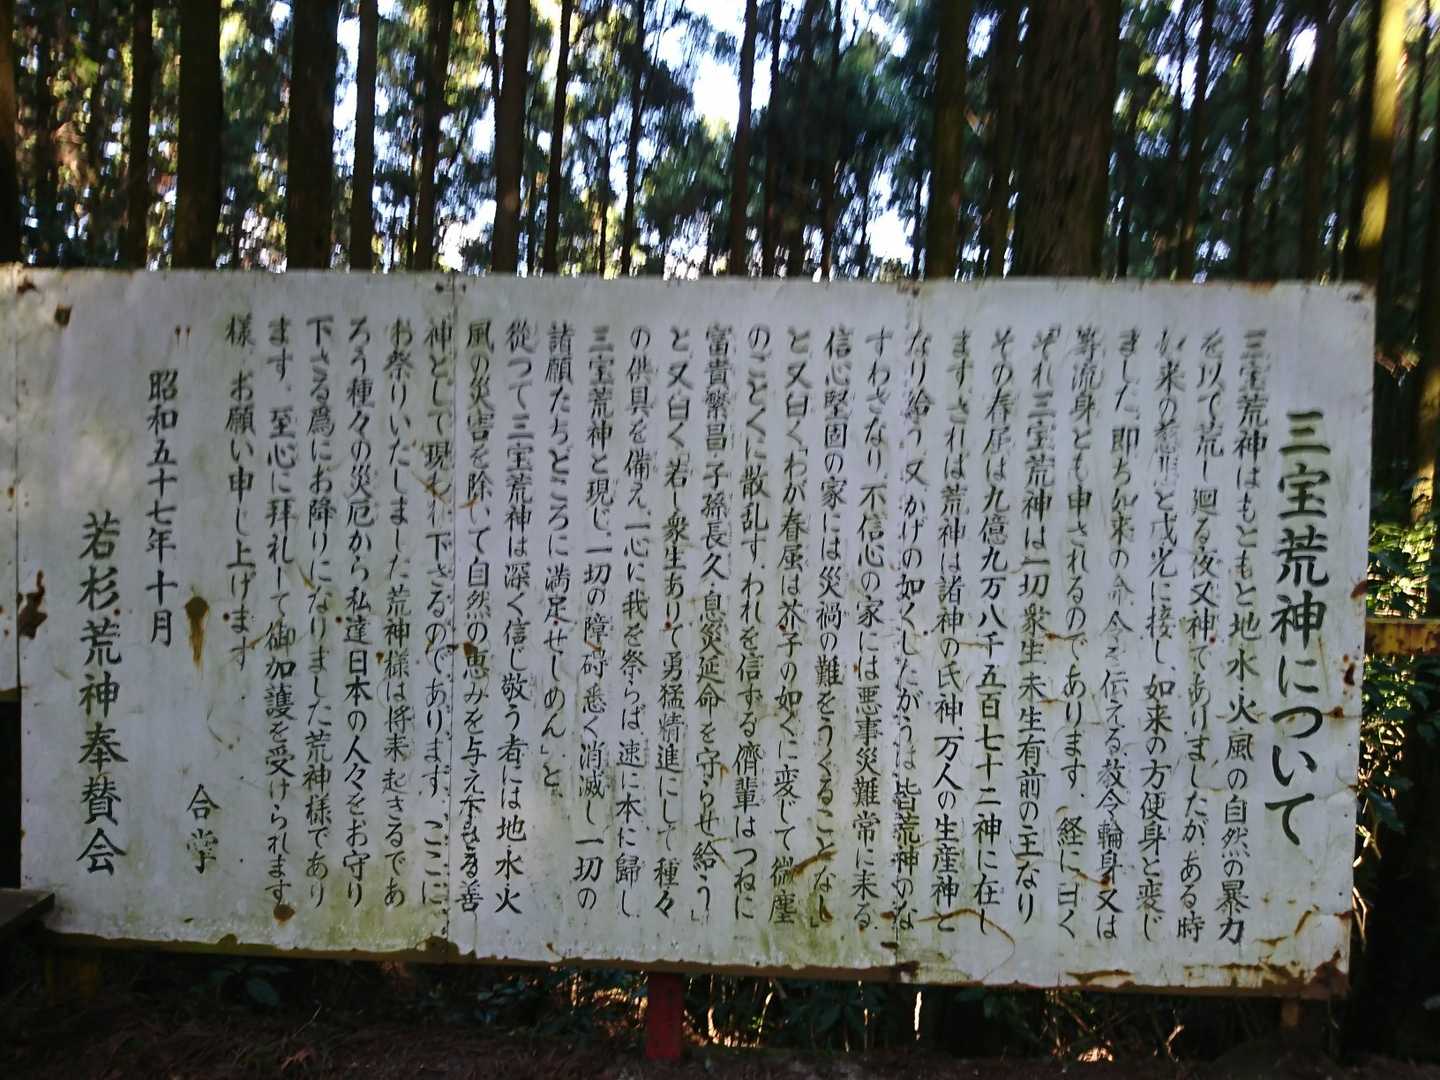 三宝荒神について
三宝荒神はもともと地水・火風の自然の暴力
を以て荒し廻る夜叉神でありましたが、ある時
如来の慈悲と戒光に接し、如来の方便身と変じ
ました、即ち如来の命令を伝える教令輪身又は
等流身とも申されるのであります、経に曰く
「それ三宝荒神は一切衆生未生有前の主なり
その眷属は九億九万八千五百七十二神に在し
ます、されば荒神は諸神の氏神、万人の生産神と
なり給う、又かげの如くしたがうは皆荒神のな
すわざなり、不信心の家には悪事災難常に来る
信心堅固の家には災禍の難をうくることなし」
と又曰く「わが眷属は芥子の如くに変じて微塵
のごとくに散乱す、われを信ずる儕輩はつねに
富貴繁昌子孫長久、息災延命を守らせ給う」
と又曰く「若し衆生ありて勇猛精進にして種々
の供具を備え、一心に我を祭らば、速に本に歸し
三宝荒神と現じ、一切の障碍悉く消滅し一切の
諸願たちどころに満足せしめん」と、
従つて三宝荒神は深く信じ敬う者には地・水・火
風の災害を除いて自然の恵みを与え下さる善
神として現われ下さるのであります、ここに
お祭りいたしました荒神様は将来起きるであ
ろう種々の災厄から私達日本の人々をお守り
下さる爲にお降りになりました荒神様であり
ます、至心に拝礼して御加護を受けられます
様、お願い申し上げます、
合掌
昭和五十七年十月
若杉荒神奉賛会